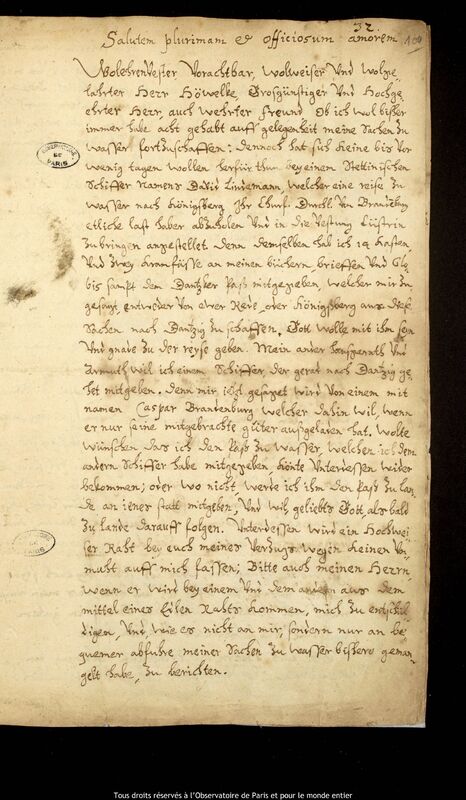 32.
100
Salutem plurimam & officiosum amorem
WolehrenVester Vorachtbar, Wolweiser Und Wolge,
lahrter Herr Höwelke, Grosgünstiger Und Hochge,
ehrter Herr, auch wehrter freund. Ob ich wol bisher
immer habe acht gehabt auff gelegenheit meine Sachen zu
wasser fortzuschaffen: dennoch hat sich keine bis vor
wenig tagen wollen herfür thun, bey einem Stettinischen
Schiffer Namens David Lindemann, welcher eine reise zu
wasser nach Königsberg Ihr Churf. Durchl. Von Brandenb.
etliche last haber abzuholen Und in die Vestung Cüstrin
zu bringen angestellet. Denn demselben hab ich 14 Kasten
Und zwey Kramfässe an meinen büchern, brieffen Und
bis sampt dem Dantzker Pass mitgegeben, welcher mir zu,
gesagt, entweder Von ewer Rede, oder Königsberg aus diese
Sachen nach Dantzig zu schaffen, Gott wolle mit ihm sein
Und gnade zu der reyse geben. Mein ander haussgerath Und
Armuth wil ich einem Schiffer, der gerad nach Dantzig ge,
het mitgeben. Denn mir ist gesaget wird Von einem mit
namen Caspar Brandenburg welcher dahin wil, wenn
er nur seine mitgebrachte güter aussgeladen hat. Wolte
wünschen das ich den Pass zu wasser, welchen ich dem
andern Schiffer habe mitgegeben, könte Unterdessen wider
bekommen; oder wo nicht, werde ich ihm den Pass zu lan,
de an jener statt mitgeben, Und wil, geliebts Gott, als bald
zu Lande darauff folgen. Unterdessen wird ein Hochwei,
ser Raht bey euch meines Verzugs wegen keinen Vn,
muht auff mich fassen; Bitte auch meinen Herrn,
wenn er wird bey einem Und dem andern aus dem
mittel eines Edlen Rahts kommen, mich zu entschul,
digen, Und, wie es nicht an mir, sondern nur an be,
quemer abfuhre meiner Sachen zu wasser bisshero geman,
gelt habe, zu berichten.
OBSERVATOIRE
DE
PARIS
DE
PARIS
Tous droits réservés à l'Observatoire de Paris et pour le monde entier